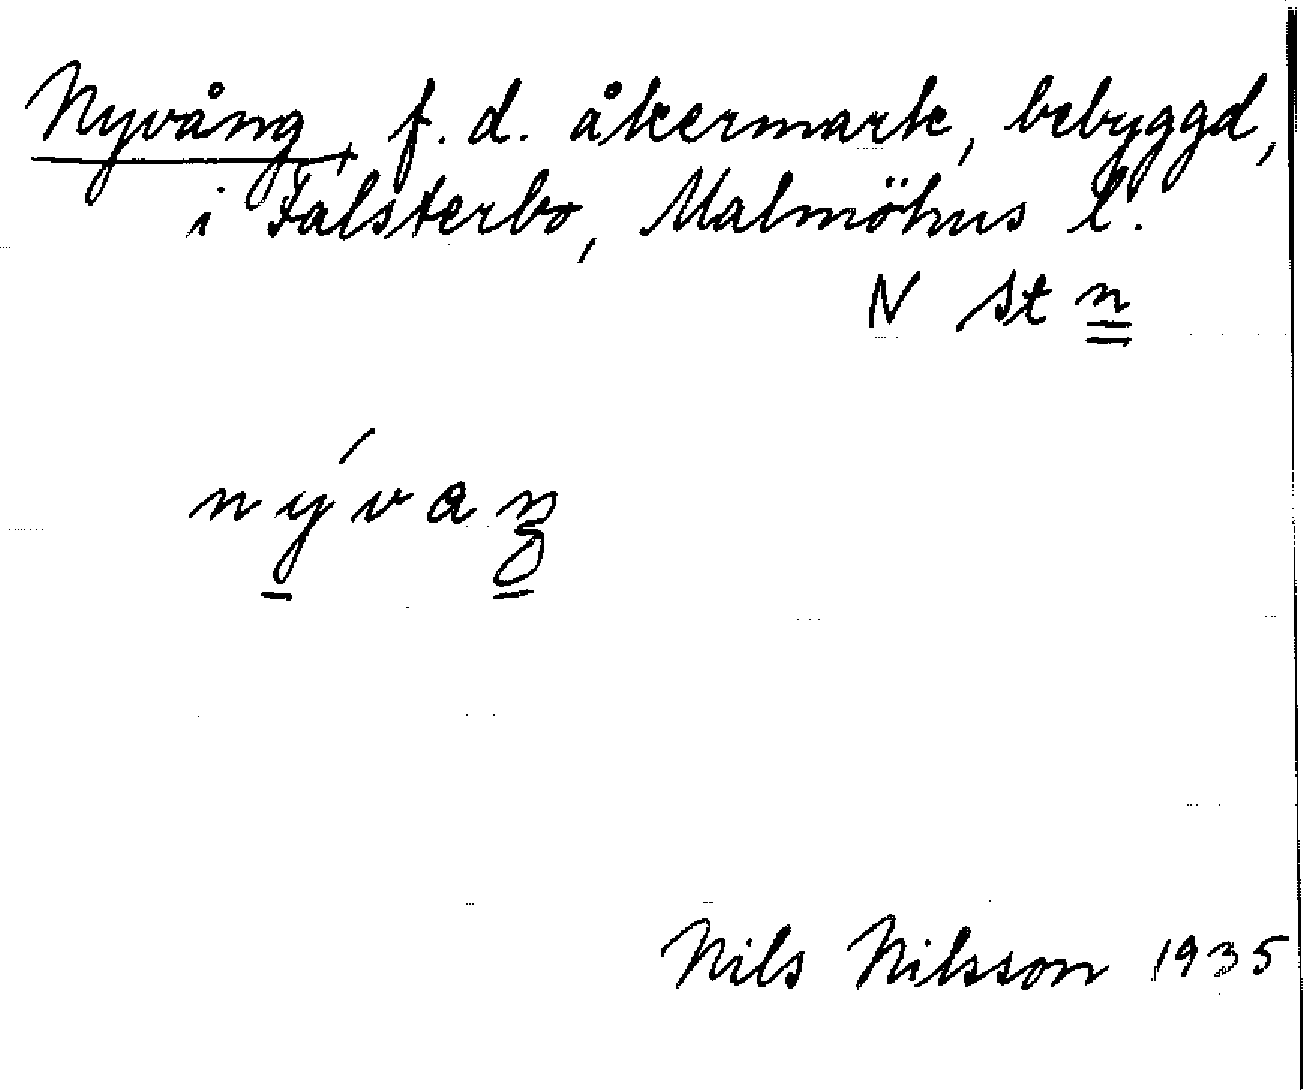 Nyvång, f.d. åkermark, bebyggd,
i Falsterbo, Malmöhus l.
N st n
nývaŋ
Nils Nilsson 1935